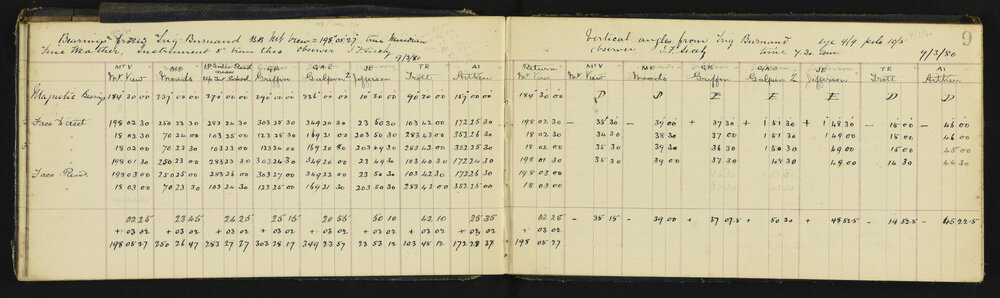 Bearings from Trig Burnand BB Mt View = 198°05'27" true Meridian
Fine Weather, Instrument 5" observer J. F. Seely
9/3/80
MTV ME GR GAL JE TR AI
Mt. View Meads Griffin Galpin 2 Jefferson Trott Arthur
Magnetic Bearing 184 30 00 237 00 00 270 00 00 290 00 00 336 00 00 10 30 00 90 30 00 159 00 00
Face Direct 198 02 30 250 23 30 283 24 30 303 25 30 349 20 30 23 50 30 103 42 00 172 25 30
" 18 02 30 70 24 00 103 25 00 123 25 00 169 21 00 203 50 30 283 43 00 352 26 30
" 18 02 00 70 23 30 103 23 00 123 24 00 169 20 30 203 49 30 283 42 00 352 25 30
" 198 01 30 250 23 00 283 23 30 303 24 30 349 20 00 23 49 30 103 40 30 172 24 30
Face Reverse 198 03 00 250 25 00 283 26 00 303 27 00 349 22 00 23 50 30 103 42 30 172 26 30
" 18 03 00 70 23 30 103 24 30 123 25 00 169 21 30 203 50 30 283 43 00 352 25 00
02 25 23 45 24 25 25 15 20 55 50 10 42 10 25 35
+ 03 02 + 03 02 + 03 02 + 03 02 + 03 02 + 03 02 + 03 02 + 03 02
198 05 27 250 26 47 283 27 27 303 28 17 349 23 57 23 53 12 103 45 12 172 28 37
Vertical angles from Trig Burnand eye 4/9 pole 10/5
observer J. F. Seely time 4.30 9/3/80
9
Return MTV ME GR GAL JE TR AI
Mt View Mt. View Meads Griffin Galpin 2 Jefferson Trott Arthur
184 30 00 D D E E E D D
198 02 30 - 35 30 - 39 00 + 37 30 + 1 51 30 + 1 48 30 - 15 00 - 46 00
18 02 30 34 30 38 30 37 00 1 51 30 1 49 00 15 00 45 00
18 02 00 35 30 39 30 36 30 1 50 30 49 00 15 00 45 00
198 01 30 35 30 39 00 37 30 48 30 49 00 14 30 44 30
198 03 00
18 03 00
02 25 - 35 15 - 39 00 + 37 07.5 + 50 30 + 48 52.5 - 14 52.5 - 45 22.5
+ 03 02
198 05 27